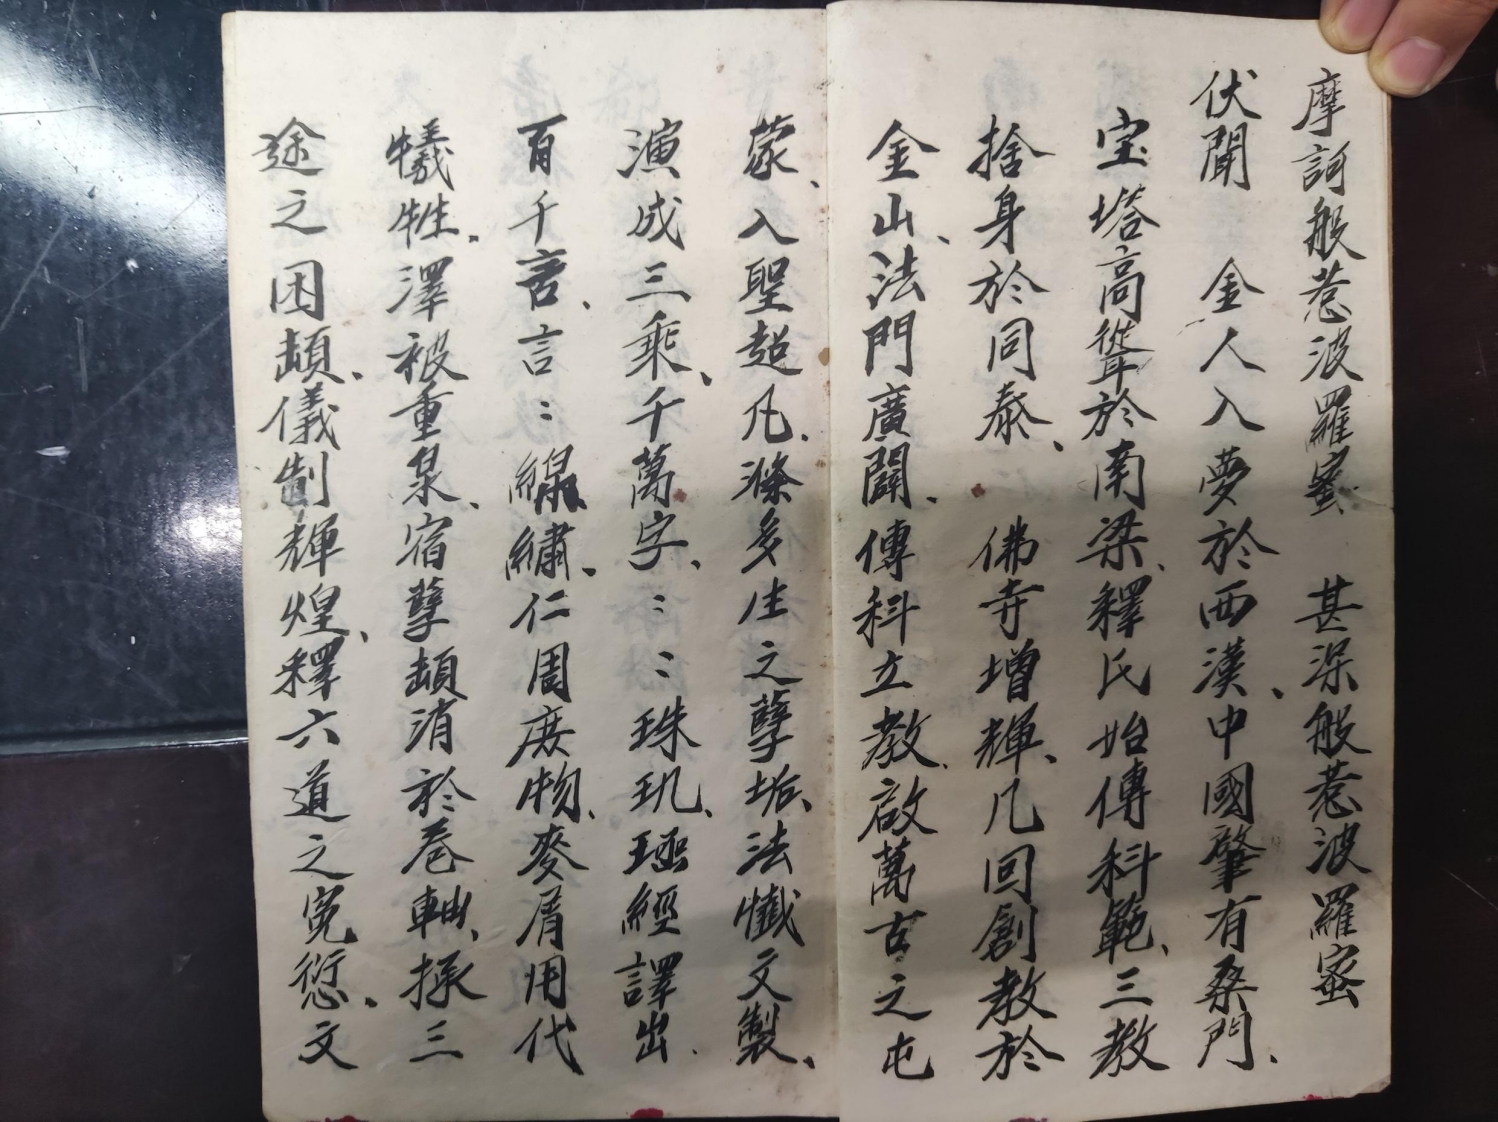 摩訶般惹波羅蜜　甚深般惹波羅蜜
伏聞　金人入夢於西漢、中國肇有桑門、
宝塔高聳於南梁、釋氏始傳科範、三教
捨身於同泰、　佛寺增輝、凡回創教於
金山、法門廣闢、傳科立教、啟萬古之屯
蒙、入聖超凡、滌多生之孽垢、法懺文製、
演成三乘、千萬字、〻〻珠玑、琅經譯出、
百千言、言〻錦繡、仁周庶物、麥屑用代
犧牲、澤被重泉、宿孽頓消於卷軸、拯三
途之困頓、儀制輝煌、釋六道之冤愆、文